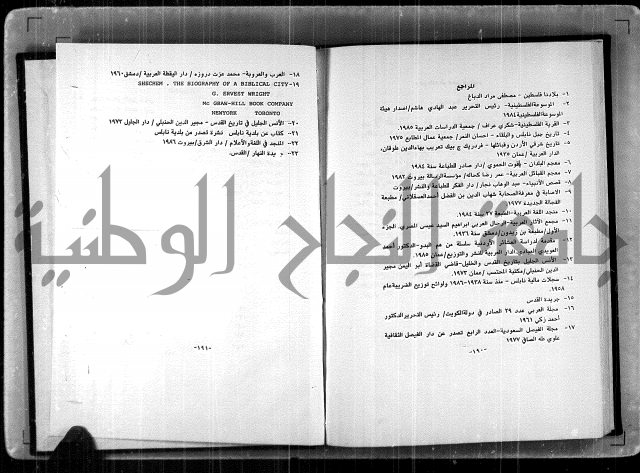 المراجع
١- بلادنا فلسطين - مصطفى مراد الدباغ
٢- الموسوعة الفلسطينية- رئيس التحرير عبد الهادي هاشم/ اصدار هيئة
الموسوعة الفلسطينية ١٩٨٤
٣- القرية الفلسطينية-شكري عراف/ جمعية الدراسات العربية ١٩٨٥
٤- تاريخ جبل نابلس والبلقاء - احسان النمر/ جمعية عمال المطابع ١٩٧٥
٥- تاريخ شرقي الأردن وقبائلها - فردريك ج بيك تعريب بهاءالدين طوقان،
الدار العربية/ عمان
٦- معجم البلدان - ياقوت الحموي/ دار صادر للطباعة سنة ١٩٨٤
٧- معجم القبائل العربية- عمر رضا كحالة/ مؤسسة الرسالة بيروت ١٩٨٢
٨- قصص الأنبياء- عبد الوهاب نجار/ دار الفكر للطباعة والنشر/بيروت
٩- الاصابة في معرفة الصحابة شهاب الدين بن الفضل احمد العسقلاني/ مطبعة
الفجالة الجديدة ١٩٧٧
١٠- منجد اللغة العربية-الطبعة ٢٧ سنة ١٩٨٤
١١- مجمع الآثار العربية-الرحال العربي ابراهيم السيد عيسى المصري، الجزء
الأول/ مطبعة بن زيدون/دمشق سنة ١٩٣٦
١٢- مقدمة لدراسة العشائر الأردنية سلسلة من هم البدو-الدكتور أحمد
العويدي العبادي/الدار العربية للنشر والتوزيع/عمان ١٩٨٥
١٣- الأنس الجليل بتاريخ القدس والخليل-قاضي القضاة أبو اليمن مجير
الدين الحنبلي/مكتبة المحتسب /عمان ١٩٧٣
١٤- سجلات مالية نابلس - منذ سنة ١٩٣٨-١٩٨٦ ولوائح توزيع الضريبة عام
١٩٥٨
١٥- جريدة القدس
١٦- مجلة العربي عدد ٣٩ الصادر في دولة الكويت/ رئيس التحرير الدكتور
أحمد زكي ١٩٦١
١٧- مجلة الفيصل السعودية-العدد الرابع تصدر عن دار الفيصل الثقافية
علوي طه الصافي ١٩٧٧
-١٩٠-
١٨- العرب والعروبة- محمد عزت دروزه / دار اليقظة العربية /دمشق ١٩٦٠
١٩- SHECHEM , THE BIOGRAPHY OF A BIBLICAL CITY
G. ERVEST WRIGHT
Mc GRAW-HILL BOOK COMPANY
NEWYORK TORONTO
٢٠- الأنس الجليل في تاريخ القدس - مجير الدين الحنبلي/ دار الجليل ١٩٧٣
٢١- كتاب عن بلدية نابلس نشرة تصدر من بلدية نابلس
٢٢- المنجد في اللغة والأعلام/ دار الشرق/بيروت ١٩٨٦
٢٣- جريدة النهار /القدس.
-١٩١-
جامعة النجاح الوطنية